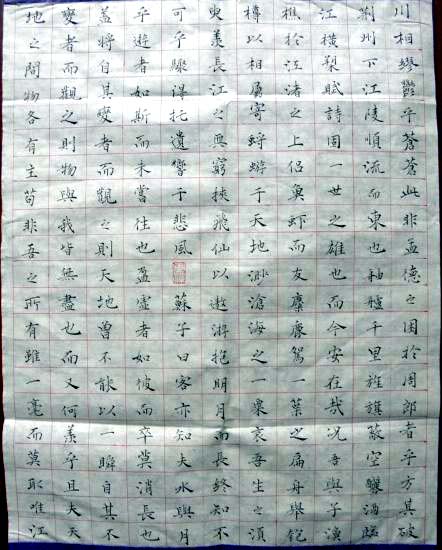 川相繆鬱乎蒼蒼此非孟德之困於周郎者乎方其破
荊州下江陵順流而東也舳艫千里旌旗蔽空釃酒臨
江橫槊賦詩固一世之雄也而今安在哉況吾與子漁
樵於江渚之上侶魚虾而友麋鹿駕一葉之扁舟舉匏
樽以相屬寄蜉蝣于天地渺滄海之一粟哀吾生之須
臾羨長江之無窮挾飛仙以遨游抱明月而長終知不
可乎驟得托遺響于悲風蘇子曰客亦知夫水與月
乎逝者如斯而未嘗往也盈虛者如彼而卒莫消長也
蓋將自其變者而觀之則天地曾不能以一瞬自其不
變者而觀之則物與我皆無盡也而又何羨乎且夫天
地之間物各有主苟非吾之所有雖一毫而莫取唯江